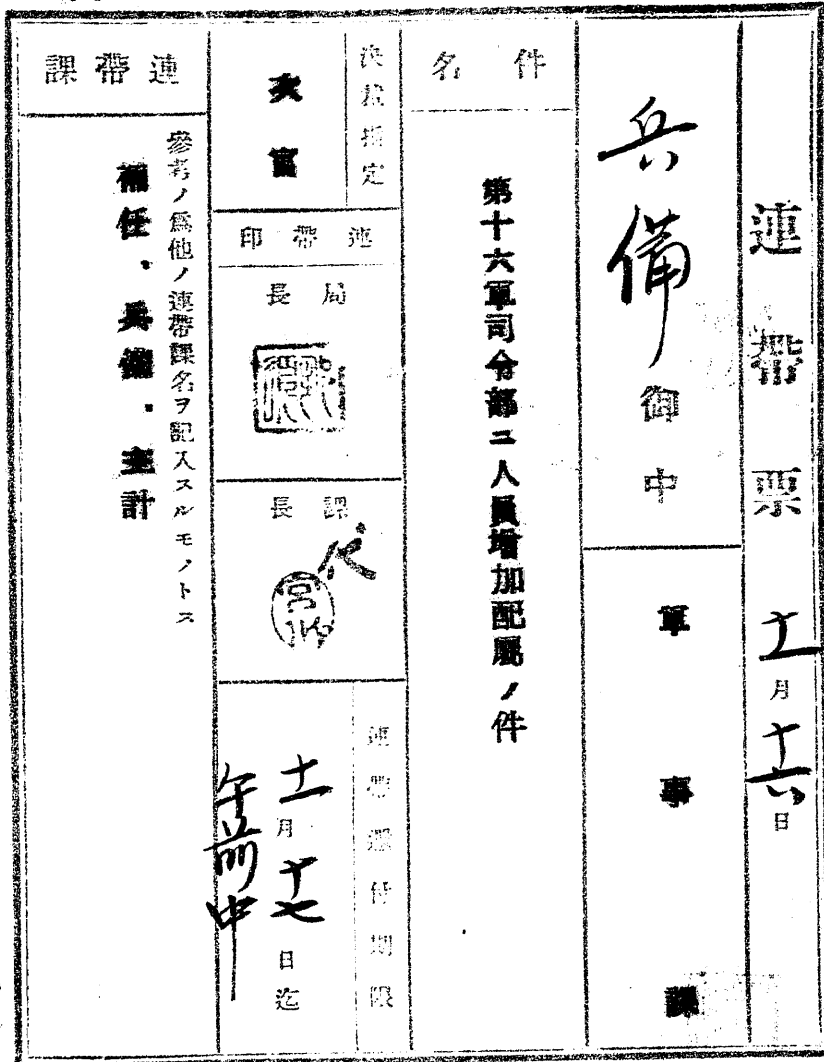 連帶票 十一月十六日
兵備御中
軍事課
件名
第十六軍司令部ニ人員增加配屬ノ件
決裁指定
次官
連帶印
局長
課長
代
連帶還付期限
十一月十七日迄
午前中
連帶課
參考ノ爲他ノ連帶課名ヲ記入スルモノトス
補任、兵備、主計